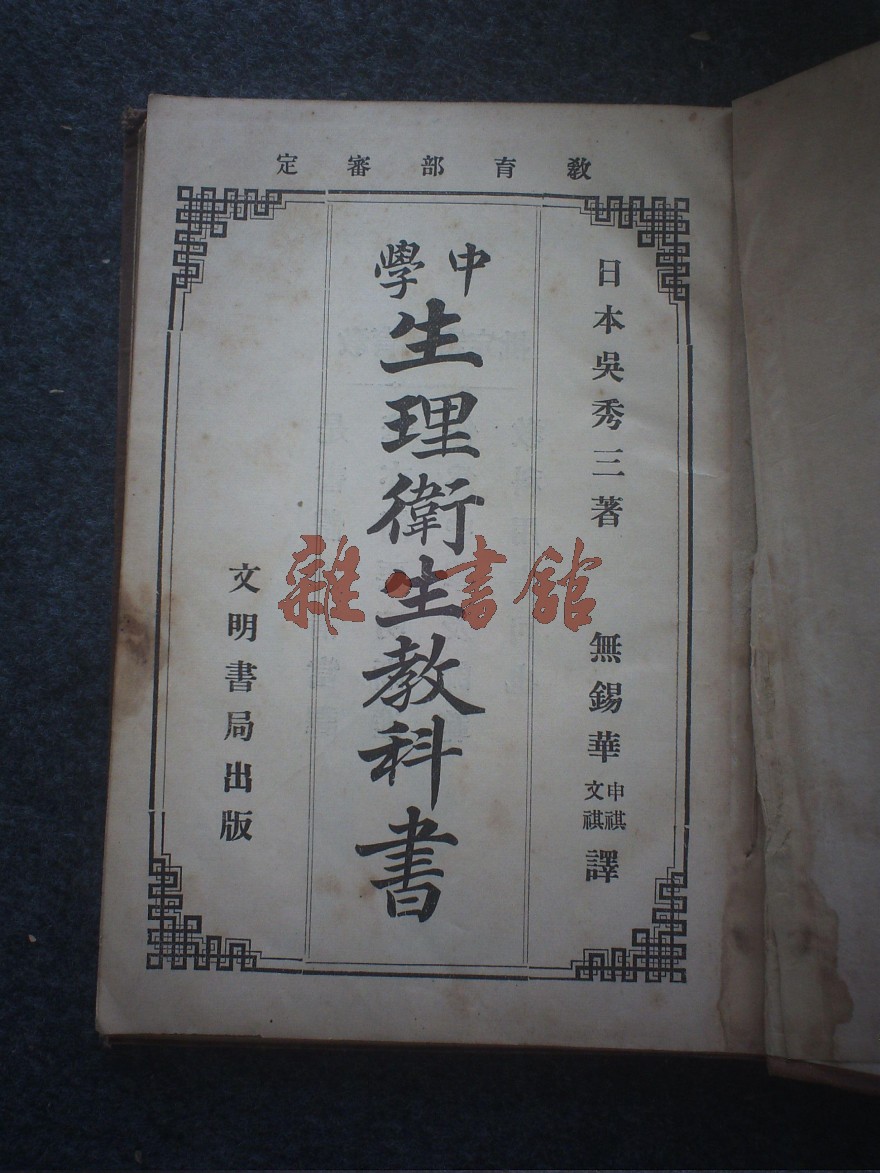 教育部審定
日本吳秀三著 無錫華申祺文祺譯
中學
生理衛生教科書
文明書局出版
雜·書館